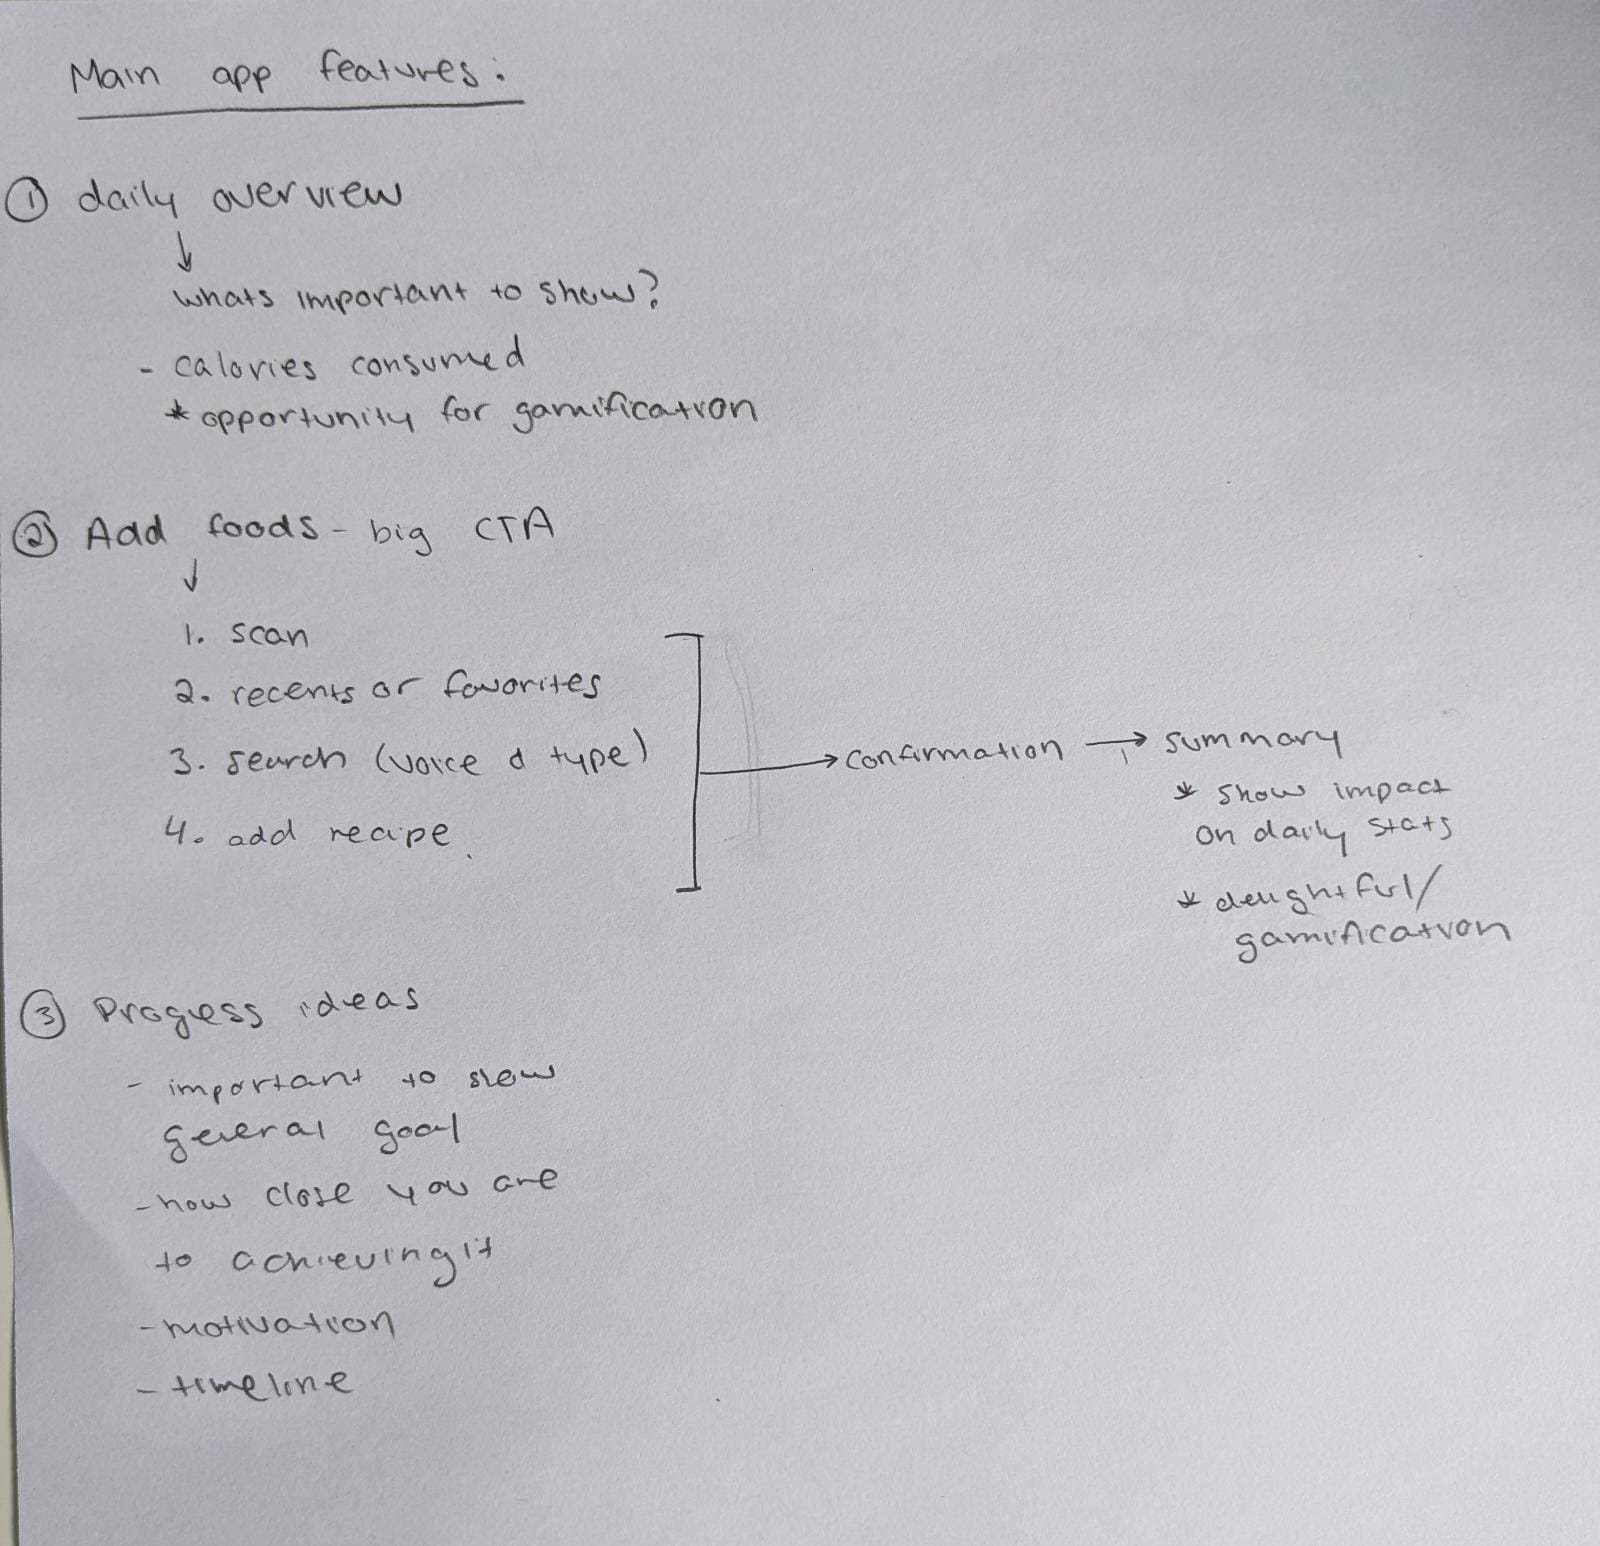 Main app features:
① daily overview
↓
whats important to show?
- calories consumed
* opportunity for gamification
② Add foods - big CTA
↓
1. scan
2. recents or favorites
3. search (voice & type)
4. add recipe
→ confirmation → summary
* show impact
on daily stats
* delightful/
gamification
③ Progress ideas
- important to show
general goal
- how close you are
to achieving it
- motivation
- timeline